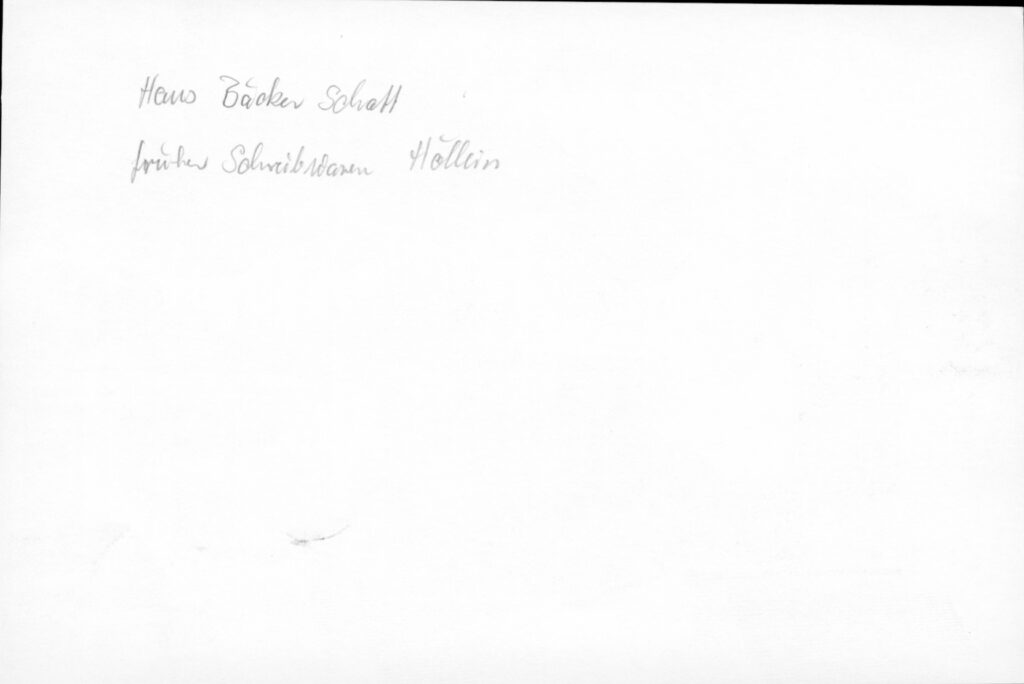 Haus Bäcker Schatt
früher Schreibwaren Höllein